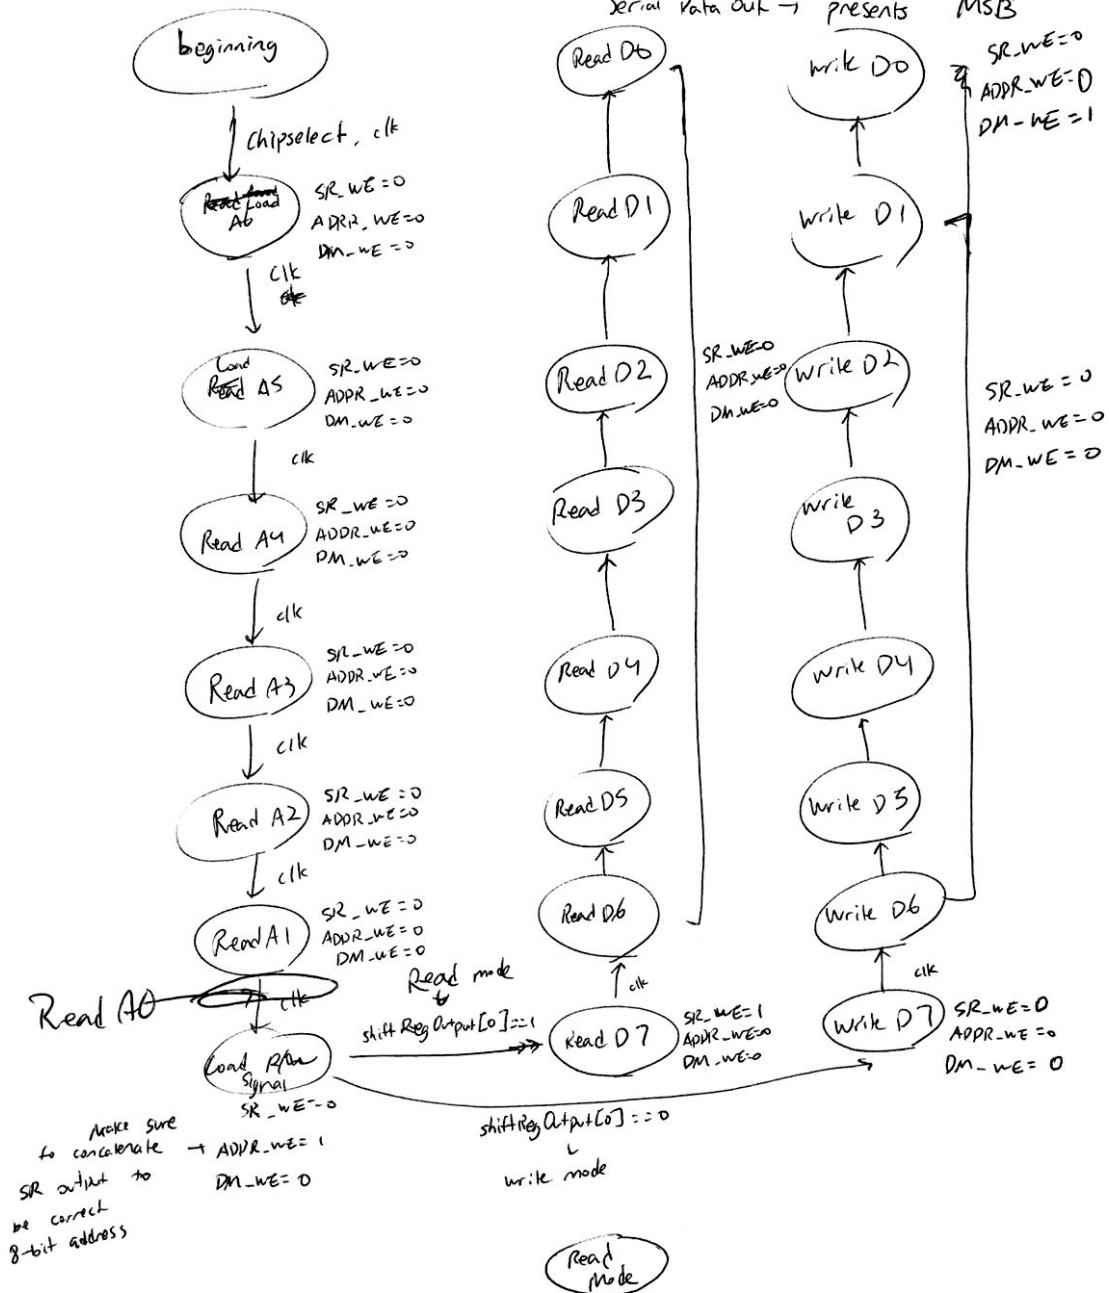 Serial Data Out → presents MSB
beginning
Chipselect, clk
A6
SR_WE=0
ADRR_WE=0
DM_WE=0
clk
Load
Read A5
SR_WE=0
ADDR_WE=0
DM_WE=0
clk
Read A4
SR_WE=0
ADDR_WE=0
DM_WE=0
clk
Read A3
SR_WE=0
ADDR_WE=0
DM_WE=0
clk
Read A2
SR_WE=0
ADDR_WE=0
DM_WE=0
clk
Read A1
SR_WE=0
ADDR_WE=0
DM_WE=0
Read A0
clk
Load
Signal
SR_WE=0
ADDR_WE=1
DM_WE=0
Make sure
to concatenate →
SR output to
be correct
8-bit address
Read mode
shiftRegOutput[0]==1
shiftRegOutput[0]==0
write mode
Read D0
Read D1
Read D2
Read D3
Read D4
Read D5
Read D6
clk
Read D7
SR_WE=1
ADDR_WE=0
DM_WE=0
SR_WE=0
ADDR_WE=0
DM_WE=0
write D0
SR_WE=0
ADDR_WE=0
DM_WE=1
write D1
write D2
write
D3
write D4
write D5
write D6
SR_WE=0
ADDR_WE=0
DM_WE=0
clk
write D7
SR_WE=0
ADDR_WE=0
DM_WE=0
Read
Mode